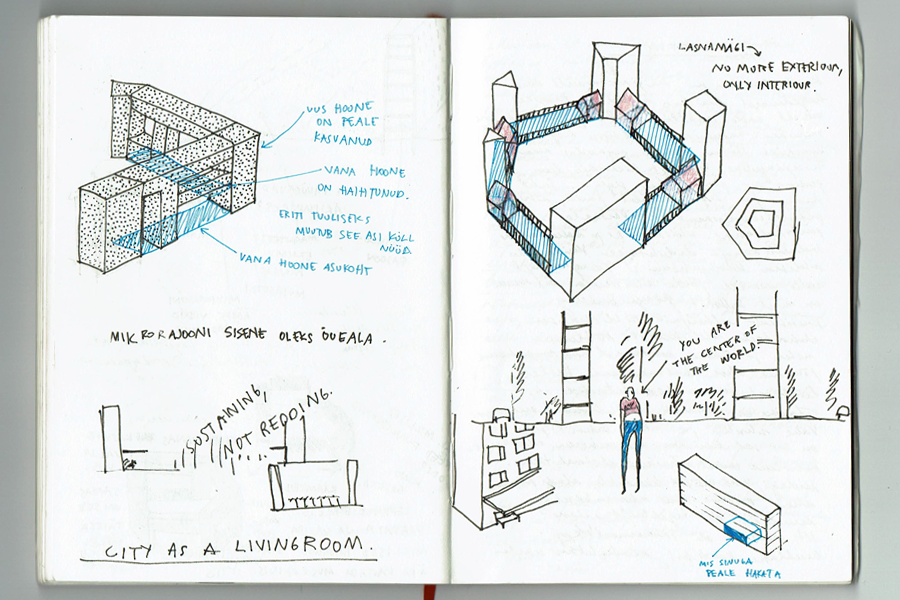 UUS HOONE
ON PEALE
KASVANUD
VANA HOONE
ON HAIHTUNUD.
ERITI TUULISEKS
MUUTUB SEE ASI KÜLL
NÜÜD.
VANA HOONE ASUKOHT
MIKRORAJOONI SISENE OLEKS ÕUEALA.
SUSTAINING,
NOT REDOING.
CITY AS A LIVINGROOM.
LASNAMÄGI
NO MORE EXTERIOUR,
ONLY INTERIOUR.
YOU ARE
THE CENTER OF
THE WORLD.
MIS SINUGA
PEALE HAKATA